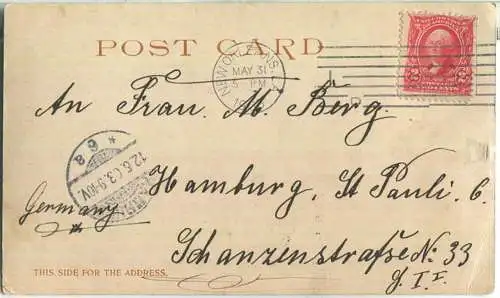 POST CARD
NEW ORLEANS, LA.
MAY 31
5 - PM
An Frau. M. Berg.
* 6 8
12.6.03. 9-10V.
Hamburg, St Pauli. 6.
Germany
Schanzenstraße N: 33
THIS SIDE FOR THE ADDRESS.